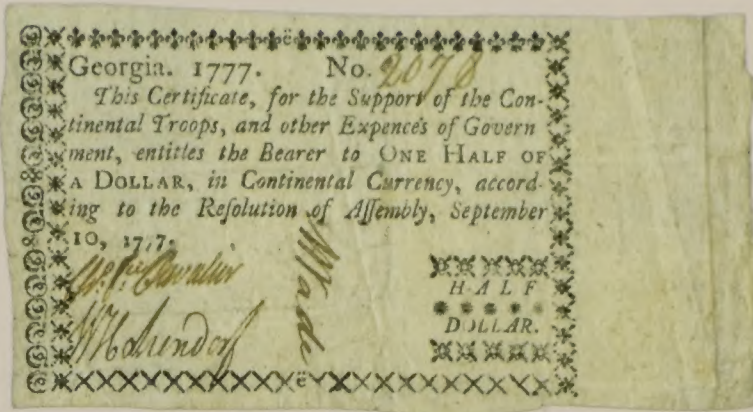 Georgia. 1777. No. 2078
This Certificate, for the Support of the Con-
tinental Troops, and other Expence's of Govern
ment, entitles the Bearer to ONE HALF OF
A DOLLAR, in Continental Currency, accord-
ing to the Reſolution of Aſſembly, September
10, 1777.
Wade
HALF
DOLLAR.